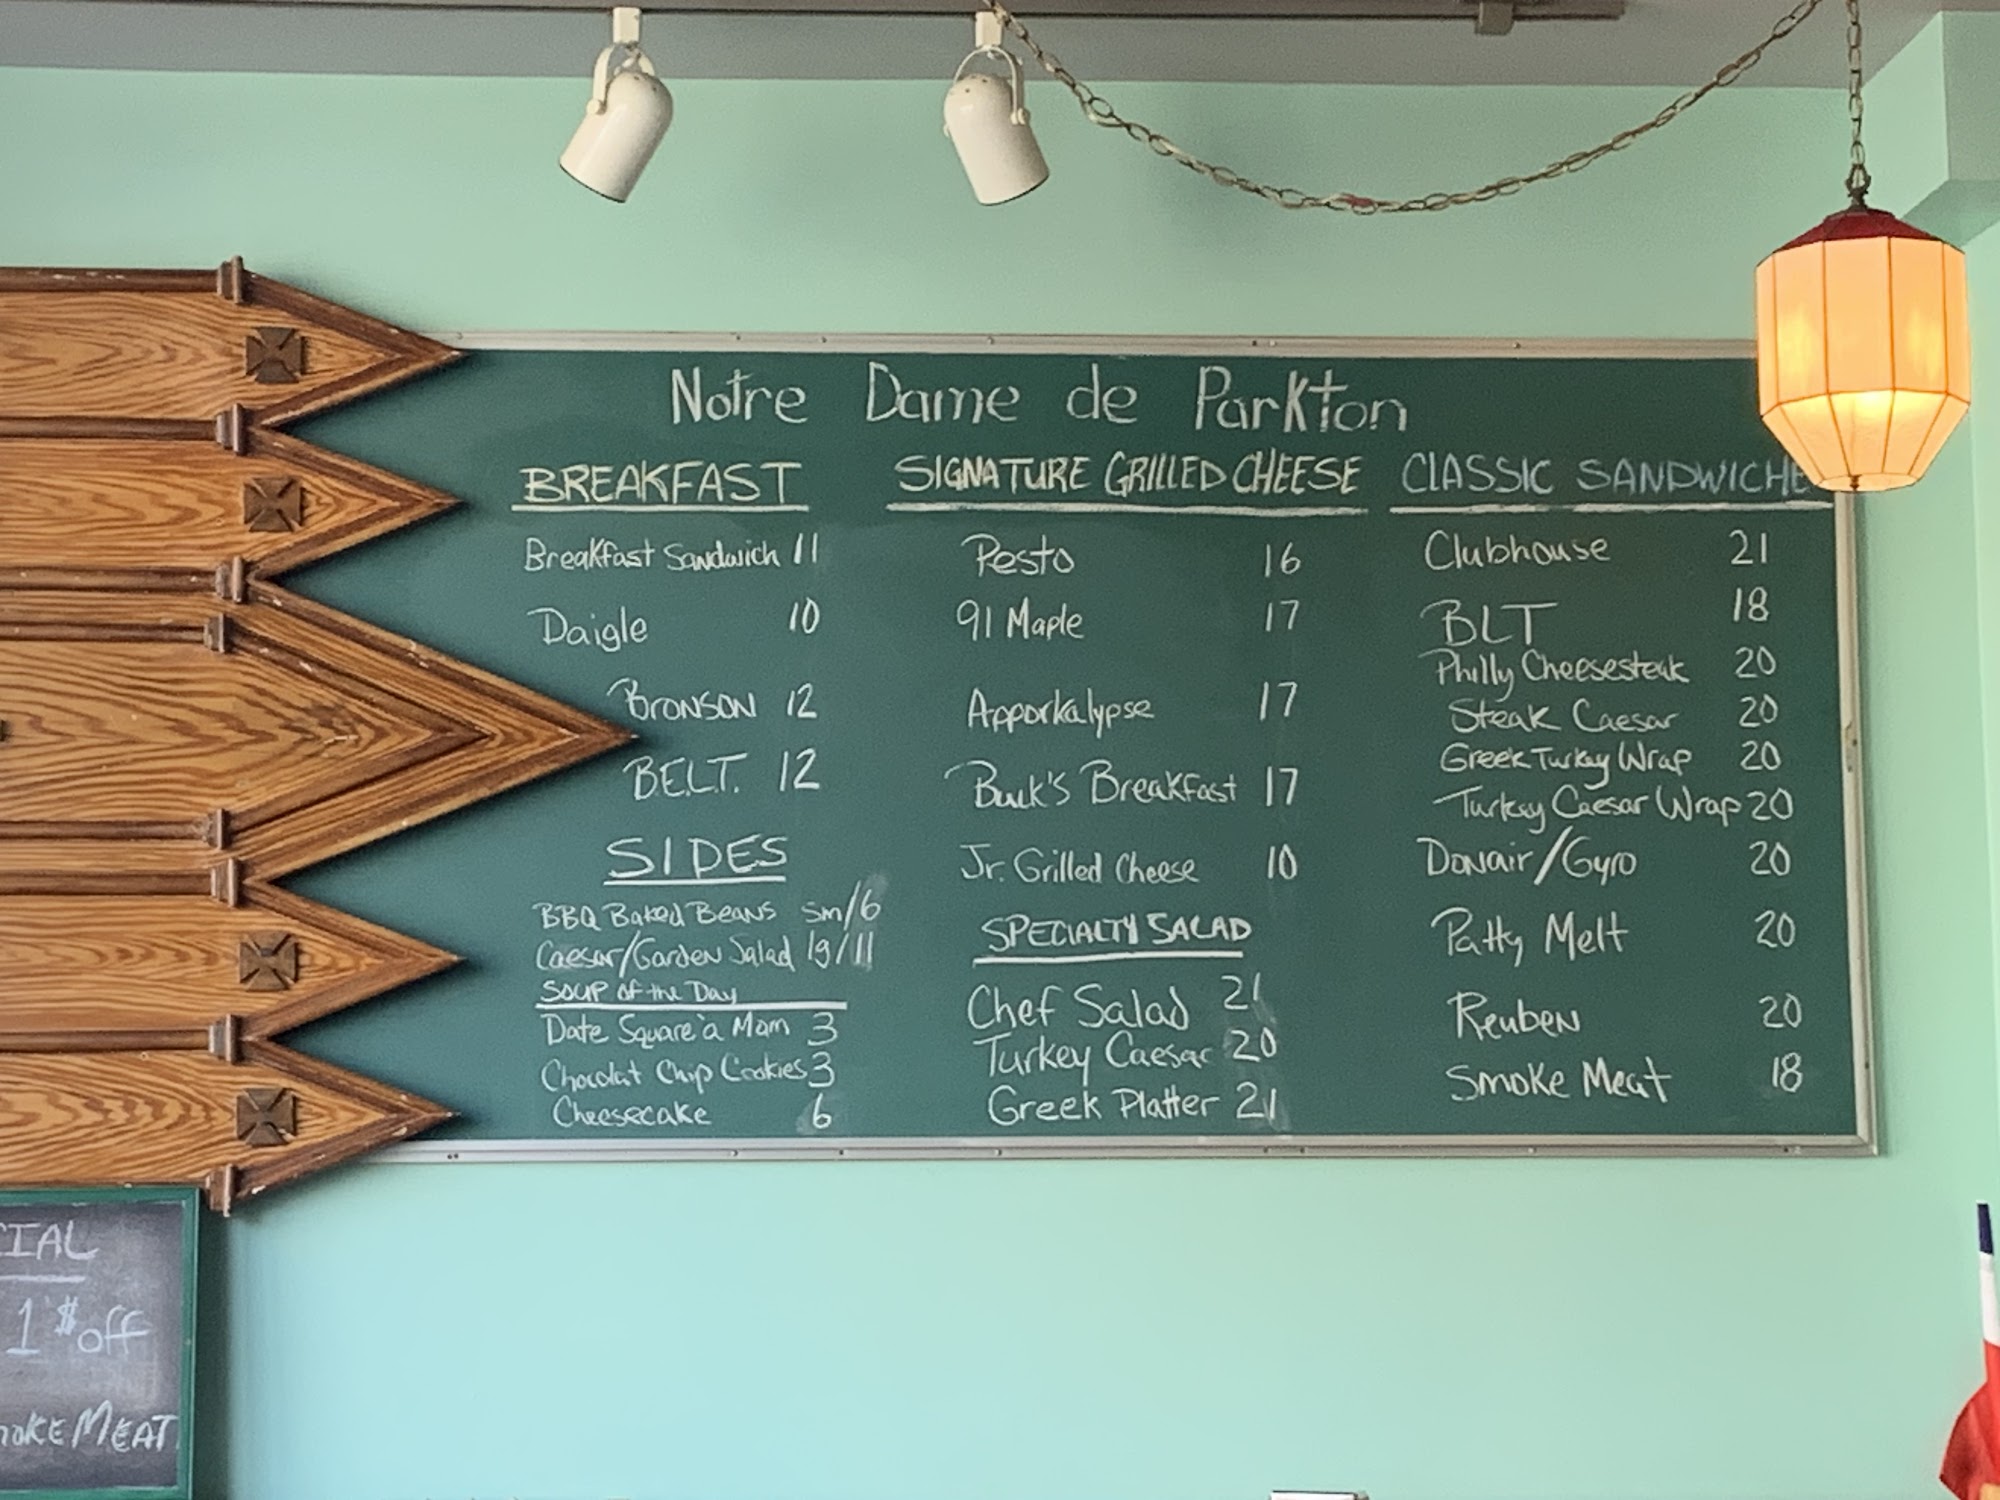 Notre Dame de Parkton
BREAKFAST
Breakfast Sandwich 11
Daigle 10
BRONSON 12
B.E.L.T. 12
SIDES
BBQ Baked Beans sm/6
Caesar/Garden Salad lg/11
SOUP of the Day
Date Square à Mom 3
Chocolat Chip Cookies 3
Cheesecake 6
SIGNATURE GRILLED CHEESE
Pesto 16
91 Maple 17
Apporkalypse 17
Buck's Breakfast 17
Jr. Grilled Cheese 10
SPECIALTY SALAD
Chef Salad 21
Turkey Caesar 20
Greek Platter 21
CLASSIC SANDWICHE
Clubhouse 21
BLT 18
Philly Cheesesteak 20
Steak Caesar 20
Greek Turkey Wrap 20
Turkey Caesar Wrap 20
Donair/Gyro 20
Patty Melt 20
Reuben 20
Smoke Meat 18
CIAL
1$ off
MOKE MEAT